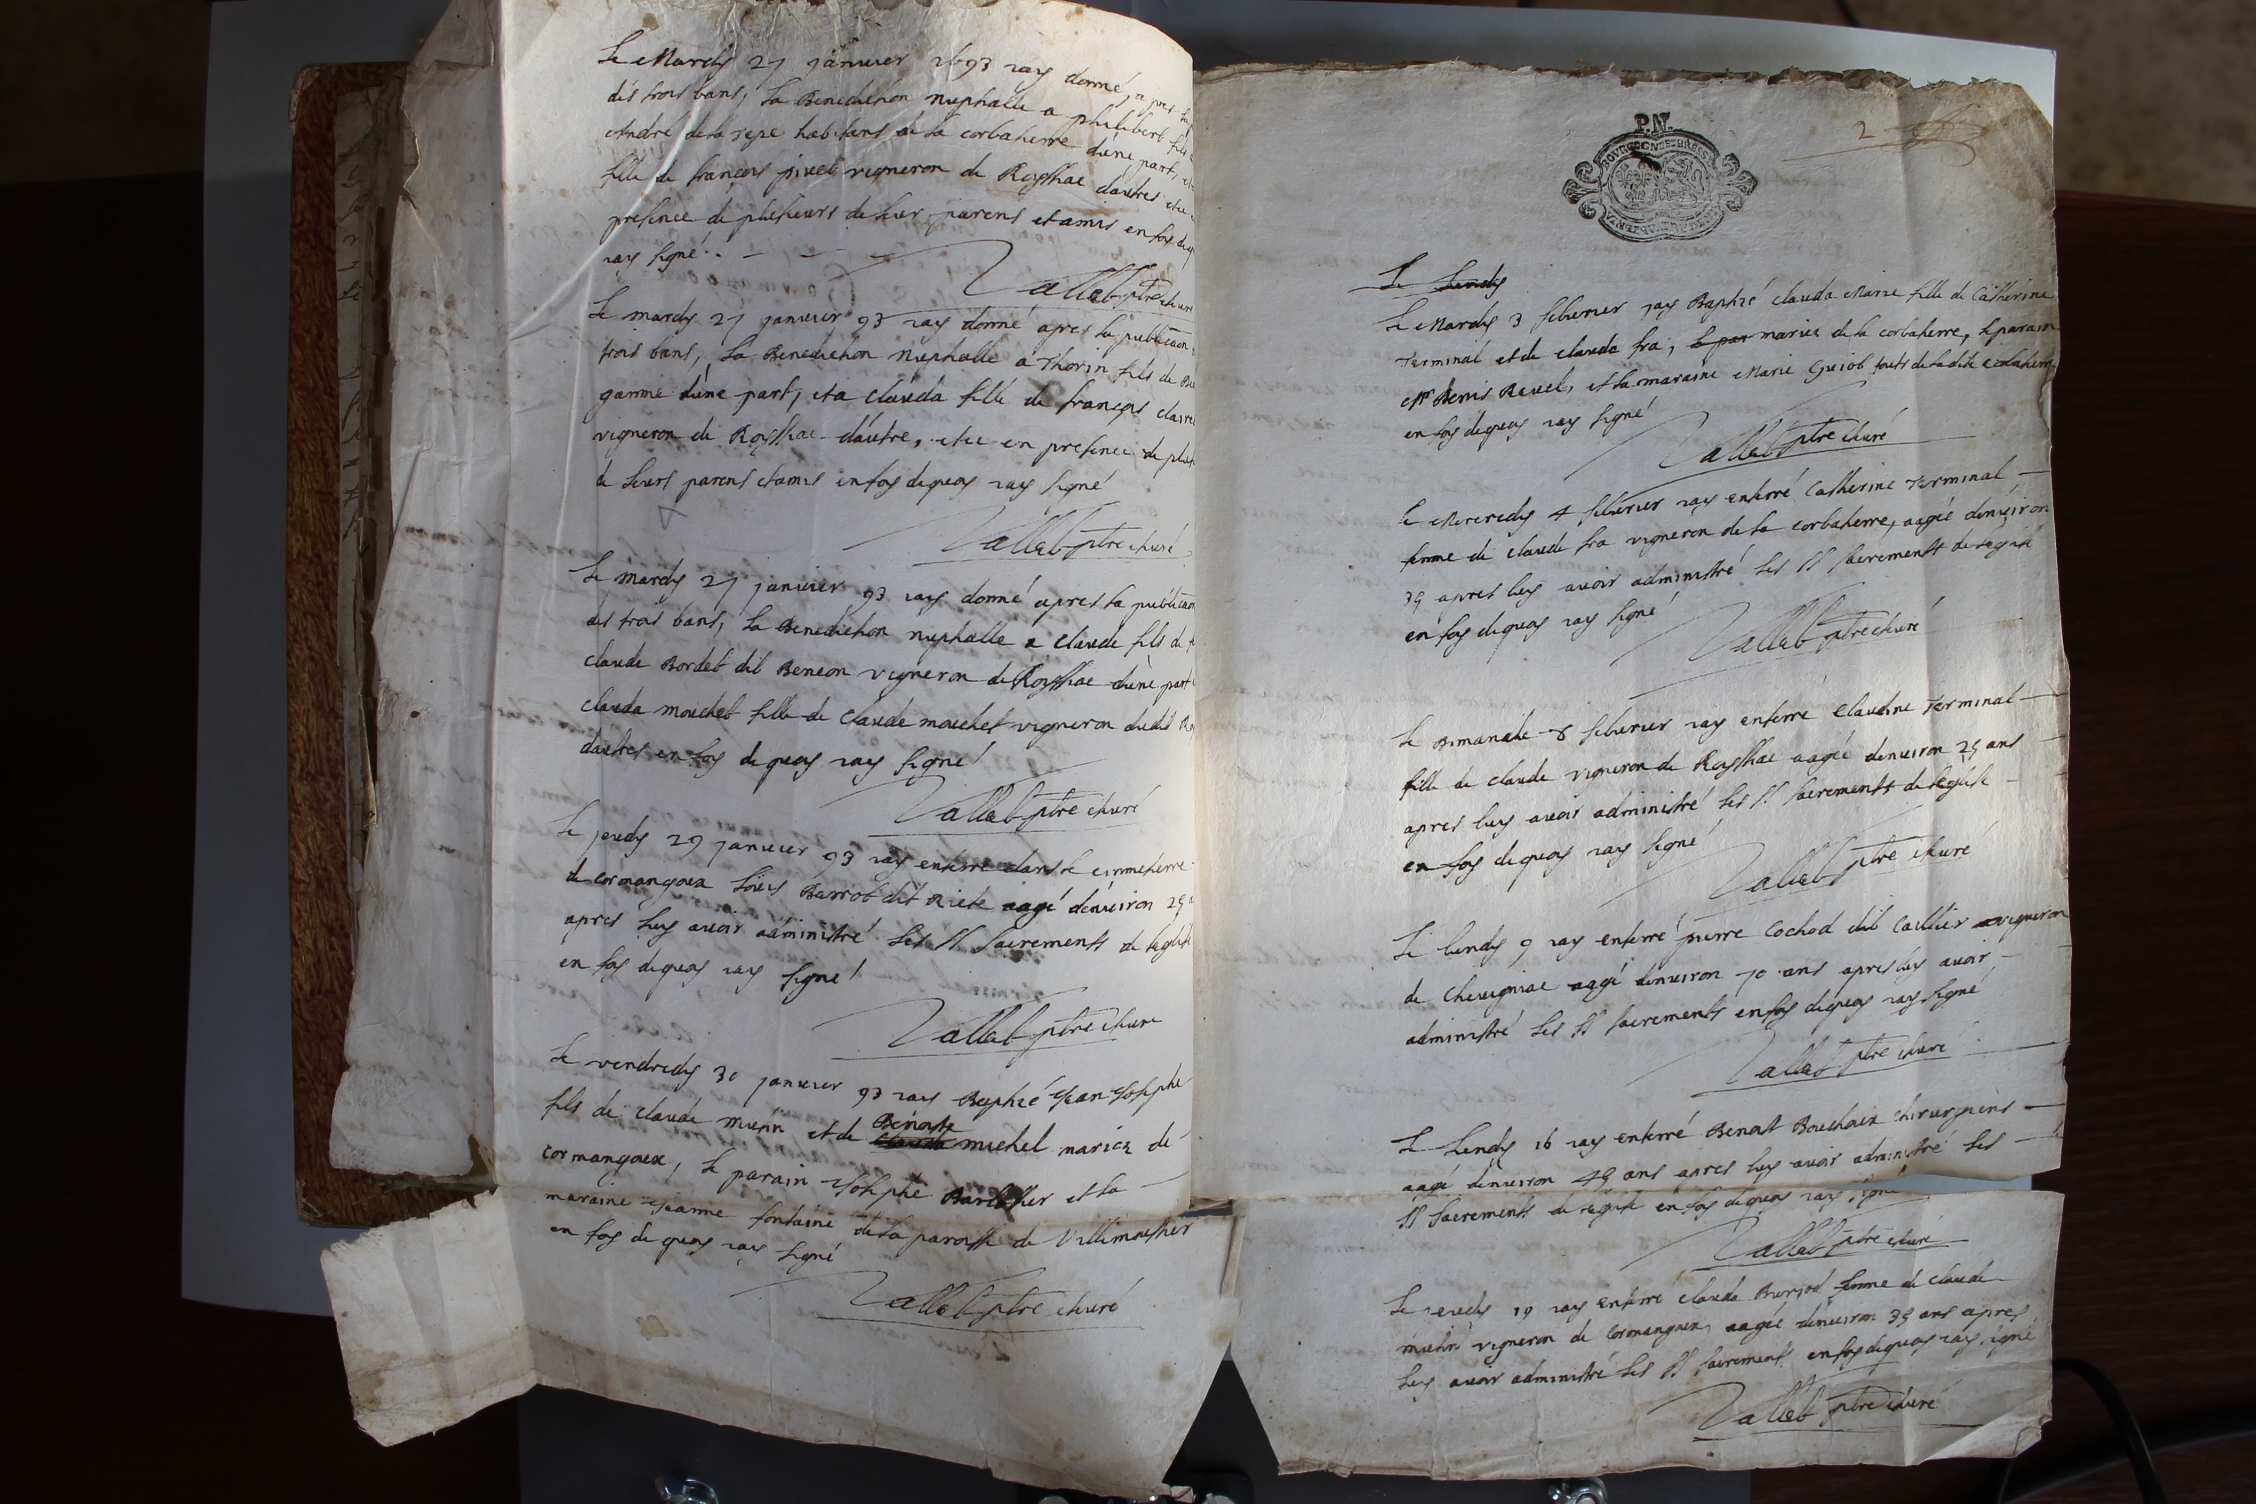 Le Mardy 27 janvier 1693 jay donné, apres la
des trois bans, la Benediction nuptialle a philibert fils
André habitans de la corbaterre d'une part, et
fille de françois pivet vigneron de Roissiac d'autres et ce
presence de plusieurs de leur parens et amis en foy de q
jay signé
Vallet ptre curé
Le mardy 27 janvier 93 jay donné apres la publication
trois bans, la Benediction nuptialle a Thorin fils de
d'une part, et a clauda fille de françois
vigneron de Roissiac d'autre, et ce en presence de plus
de leurs parens et amis en foy de quoy jay signé
Vallet ptre curé
Le mardy 27 janvier 93 jay donné apres la publication
des trois bans, la Benediction nuptialle a claude fils de
claude Bordet dit Beneon vigneron de Roissiac d'une part
clauda mouchet fille de claude mouchet vigneron dudit
d'autres en foy de quoy jay signé
Vallet ptre curé
Le jeudy 29 janvier 93 jay enterré dans le cimmeterre
de cormangoux Barrot dit aagé d'environ 25
apres luy avoir administré les SS sacrements de l'eglise
en foy de quoy jay signé
Vallet ptre curé
Le vendredy 30 janvier 93 jay Baptizé Jean Josephe
fils de claude mutin et de Benoite michel mariez de
cormangoux, le parain Josephe et la
maraine Jeanne fontaine de la paroisse de Villemostier
en foy de quoy jay signé
Vallet ptre curé
P.N.
2
Le Lundy
Le Mardy 3 febvrier jay Baptizé clauda Marie fille de Catherine
Terminal et de claude fra, le par mariez de la corbaterre, le parain
Mr Denis Revel, et la maraine Marie Guiot touts de ladite corbaterre
en foy de quoy jay signé
Vallet ptre curé
Le Mercredy 4 febvrier jay enterré Catherine Terminal
femme de claude fra vigneron de la corbaterre, aagée d'environ
35 apres luy avoir administré les SS sacrements de l'eglise
en foy de quoy jay signé
Vallet ptre curé
Le Dimanche 8 febvrier jay enterré claudine Terminal
fille de claude vigneron de Roissiac aagée d'environ 25 ans
apres luy avoir administré les SS sacrements de l'eglise
en foy de quoy jay signé
Vallet ptre curé
Le lundy 9 jay enterré pierre Cochod dit Caillier vigneron
de Chevigniac aagé d'environ 70 ans apres luy avoir
administré les SS sacrements en foy de quoy jay signé
Vallet ptre curé
Le Lundy 16 jay enterré Benoit Bouchoux chirurgiens
aagé d'environ 45 ans apres luy avoir administré les
SS sacrements de l'eglise en foy de quoy jay signé
Vallet ptre curé
Le jeudy 19 jay enterré clauda Burjod femme de claude
mutin vigneron de Cormangoux aagée d'environ 35 ans apres
luy avoir administré les SS sacrements en foy de quoy jay signé
Vallet ptre curé